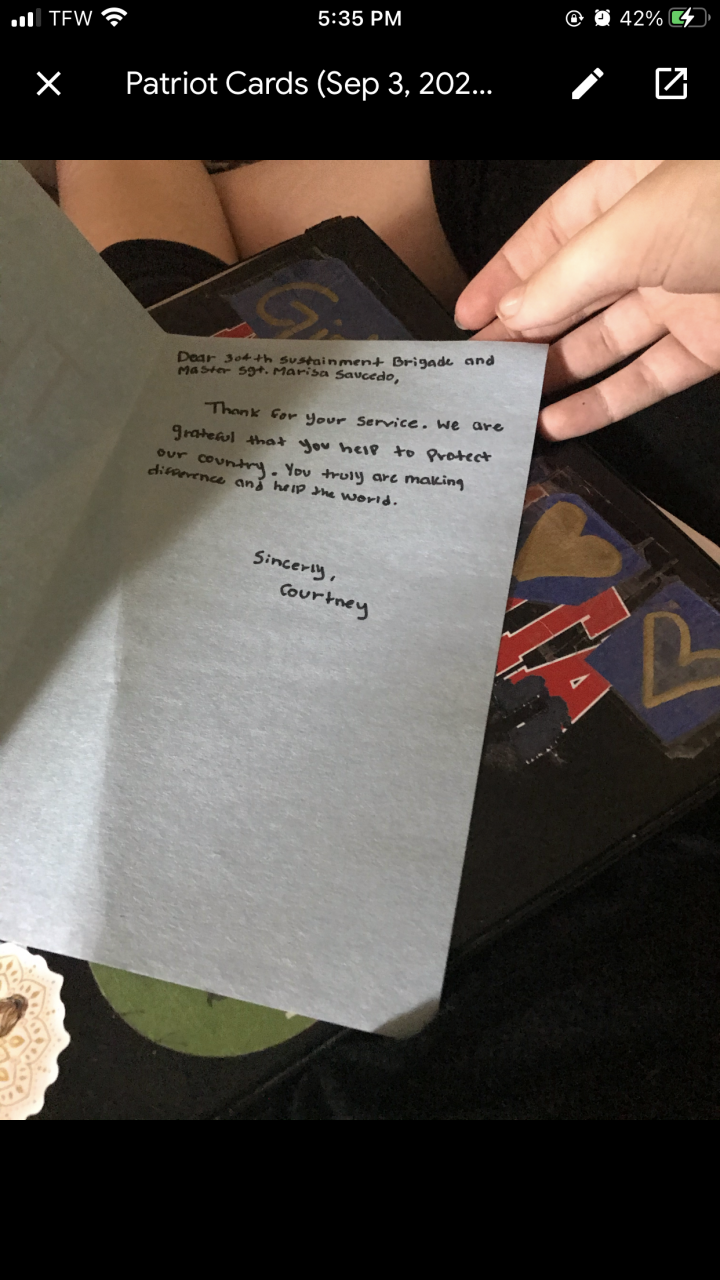 TFW
5:35 PM
42%
Patriot Cards (Sep 3, 202...
Dear 304th Sustainment Brigade and
Master Sgt. Marisa Saucedo,
Thank for your service. We are
grateful that you help to protect
our country. You truly are making
difference and help the world.
Sincerly,
Courtney